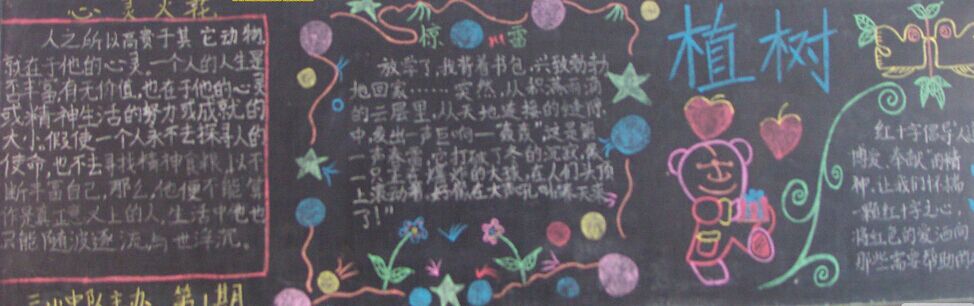 心灵火花
人之所以高贵于其它动物
就在于他的心灵。一个人的人生是
否丰富,有无价值,也在于他的心灵
或精神生活的努力或成就的
大小。假使一个人永不去探寻人的
使命,也不去寻找精神食粮,以不
断丰富自己,那么,他便不能算
作是真正意义上的人,生活中他也
只能随波逐流与世浮沉。
中队主办 第1期
惊 雷
放学了,我背着书包,兴致勃勃
地回家……突然,从积满雨滴
的云层里,从天地连接的缝隙
中发出一声巨响—"轰轰"这是第
一声春雷,它打破了冬的沉寂,像
一只
滚动着,好像在大声
上了!"
植树
红十字倡导人
博爱、奉献的精
神,让我们怀揣
一颗红十字之心,
将红色的爱洒向
那些需要帮助的